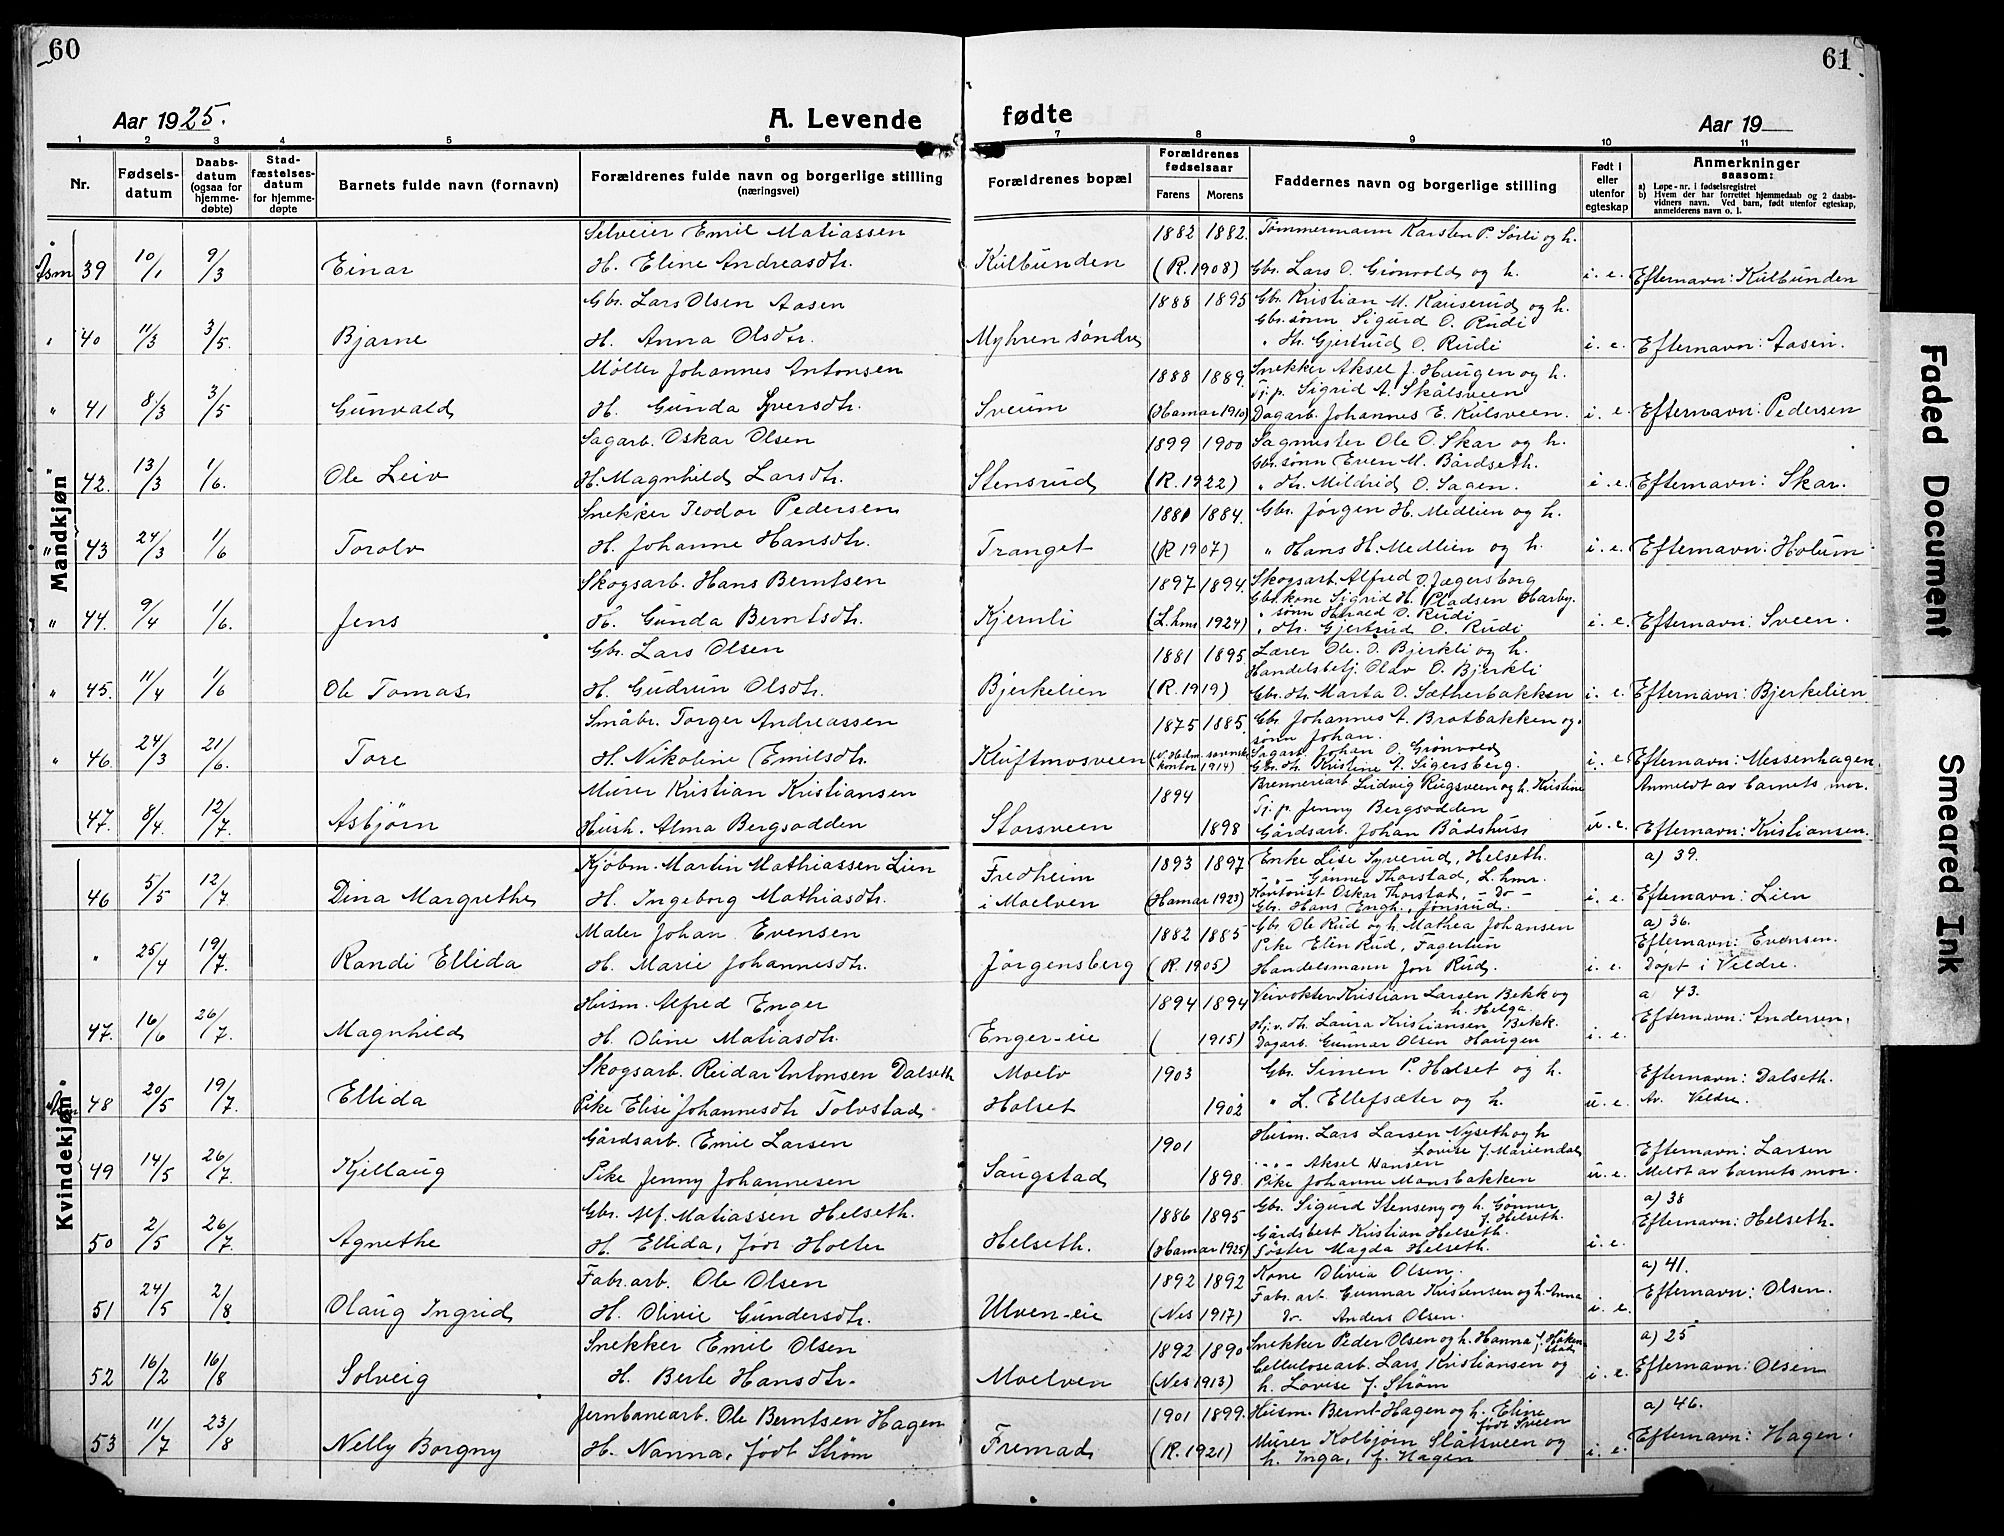 60
61
Aar 1925.
A. Levende
fødte
Aar 19
1 2 3 4 5 6 7 8 9 10 11
Nr.
Fødsels-
datum
Daabs-
datum
(ogsaa for
hjemme-
døbte)
Stad-
fæstelses-
datum
for hjemme-
døpte
Barnets fulde navn (fornavn)
Forældrenes fulde navn og borgerlige stilling
(næringsvei)
Forældrenes bopæl
Forældrenes
fødselsaar
Farens
Morens
Faddernes navn og borgerlige stilling
Født i
eller
utenfor
egteskap
Anmerkninger
saasom:
a) Løpe-nr. i fødselsregistret
b) Hvem der har forrettet hjemmedaab og 2 daabs-
vidners navn. Ved barn, født utenfor egteskap,
anmelderens navn o. l.
Mandkjøn
Selveier Emil Matiassen 1882 1882. Tømmermann Karsten P. Sørli og h.
39 10/1 9/3 Einar H. Eline Andreasdtr. Kulbunden (R. 1908) Gbr. Lars O. Grønvold og h. i. e. Efternavn: Kulbunden
Gbr. Lars Olsen Aasen 1888 1895 Gbr. Kristian M. Kauserud og h.
Gbr. sønn Sigurd O. Rudi
" 40 11/3 3/5. Bjarne H. Anna Olsdtr. Myhren søndre " dtr. Gjertrud O. Rudi i. e. Efternavn: Aasen.
Møller Johannes Antonsen 1888 1889. Snekker Aksel J. Haugen og h.
Tj. p. Sigrid A. Skålsveen
" 41 8/3 3/5 Gunvald H. Gunda Iversdtr. Sveum (Hamar 1910) Dagarb. Johannes E. Kulsveen. i. e. Efternavn: Pedersen
Sagarb. Oskar Olsen 1899 1900 Sagmester Ole O. Skar og h.
Gbr. sønn Even M. Bårdseth.
" 42. 13/3 1/6. Ole Leiv H. Magnhild Larsdtr. Stensrud (R. 1922) " dtr. Mildrid O. Sagen. i. e. Efternavn: Skar.
Snekker Teodor Pedersen 1881 1884. Gbr. Jørgen H. Medlien og h.
" 43 24/3 1/6 Torolv H. Johanne Hansdtr. Tranget (R 1907) " Hans H. Medlien og h. i. e. Efternavn: Holum
Skogsarb. Hans Berntsen 1897 1894. Skogsarb. Alfred O. Jægersborg
Gbr. kone Sigrid H. Pladsen Harby.
" sønn Harald O. Rudi
" 44. 9/4 1/6. Jens H. Gunda Berntsdtr. Kjernli (L.hmr 1924) " dtr. Gjertrud O. Rudi i. e. Efternavn: Sveen.
Gbr. Lars Olsen 1881 1895. Lærer Ole O. Bjerkli og h.
Handelsbetj. Olav O. Bjerkli
" 45. 11/4 1/6 Ole Tomas H. Gudrun Olsdtr. Bjerkelien (R. 1919) Gbr. dtr. Marta O. Sætherbakken i. e. Efternavn: Bjerkelien
Småbr. Torger Andreassen 1875 1885. Gbr Johannes A. Brotbakken og
sønn Johan.
Sagarb Johan O. Grønvold
" 46. 24/3 21/6. Tore H. Nikoline Emilsdtr. Kluftmosveen kontor 1914) Gbr. dtr. Kristine A. Sigersberg. i. e. Efternavn: Messenhagen
Murer Kristian Kristiansen 1894 Brenneriarb. Ludvig Rugsveen og h. Kristine Anmeldt av barnets mor.
Tj. p. Jenny Bergsodden
47. 8/4. 12/7. Asbjørn Hush. Alma Bergsodden Storsveen 1898 Gårdsarb. Johan Bådshus u. e. Efternavn: Kristiansen.
Kvindekjøn
Kjøbm. Martin Mathiassen Lien Fredheim 1893 1897 Enke Lise Syverud, Helseth. a) 39.
- " - Gønner Thorstad, L. hmr.
46 5/5 12/7. Dina Margrethe H. Ingeborg Mathiasdtr. i Moelven (Hamar 1923) Kontorist Oskar Thorstad, - do - i. e. Efternavn: Lien
Gbr. Hans Engh, Jønsrud.
Maler Johan Evensen 1882 1885 Gbr Ole Rud og h. Mathea Johansen a) 36.
Pike Elin Rud, Fagertun Efternavn: Evensen.
" 25/4 19/7. Randi Ellida H. Marie Johannesdtr. Jørgensberg (R. 1905) Handelsmann Jon Rud. i. e. Døpt i Veldre.
Husm. Alfred Enger 1894 1894 Veivokter Kristian Larsen Bekk og a) 43.
h. Helga. Efternavn: Andersen.
Hj. v. dtr. Laura Kristiansen Bekk.
47. 16/6 26/7. Magnhild H. Oline Matiasdtr. Enger-eie ( 1915) Dagarb. Gunnar Olsen Haugen i. e.
Skogsarb. Reidar Antonsen Dalseth Moelv 1903 Gbr. Simen P. Halset og h. Efternavn: Dalseth.
48 20/5 19/7. Ellida Pike Elise Johannesdtr Tolvstad Holset 1902 " L. Ellefsæter og h. u. e. Av. Veldre.
Gårdsarb. Emil Larsen 1901 Husm. Lars Larsen Nyseth og h Efternavn: Larsen
Lovise f. Mariendal
" " - Aksel Hansen
49 14/5 26/7. Kjellaug Pike Jenny Johannesen Saugstad 1898. Pike Johanne Monsbakken u. e. Meldt av barnets mor.
Gbr. Alf. Matiassen Helseth. 1886 1895 Gbr. Sigurd Stenseng og h. Gønner a) 38
f. Helseth. Efternavn: Helseth.
Gårdsbest Kristian Helseth.
50 2/5 26/7. Agnethe H. Ellida, født Holter Helseth. (Hamar 1925) Søster Magda Helseth. i. e.
Fabr. arb. Ole Olsen 1892 1892 Kone Olivia Olsen. a) 41.
Fabr. arb Gunnar Kristensen og h. Anna Efternavn: Olsen.
51 24/5 2/8 Olaug Ingrid H. Olivie Gundersdtr. Ulven-eie (Nes 1917) do. Anders Olsen. i. e.
Snekker Emil Olsen 1892 1890 Snekker Peder Olsen og h. Hanna f. Håken- a) 25
stad
Cellulosearb. Lars Kristiansen og
52 16/2 16/8 Solveig H. Berte Hansdtr. Moelven (Nes 1913) h. Lovise f. Strøm i. e. Efternavn: Olsen
Jernbanearb. Ole Berntsen Hagen 1901 1899. Husm. Bernt Hagen og h. Eline a) 46.
født Sveen
Murer Kolbjørn Slåtsveen og
53 11/7 23/8 Nelly Borgny H. Nanna, født Strøm Fremad (R. 1921) h. Inga, f. Hagen i. e. Efternavn: Hagen.
Faded Document
Smeared Ink